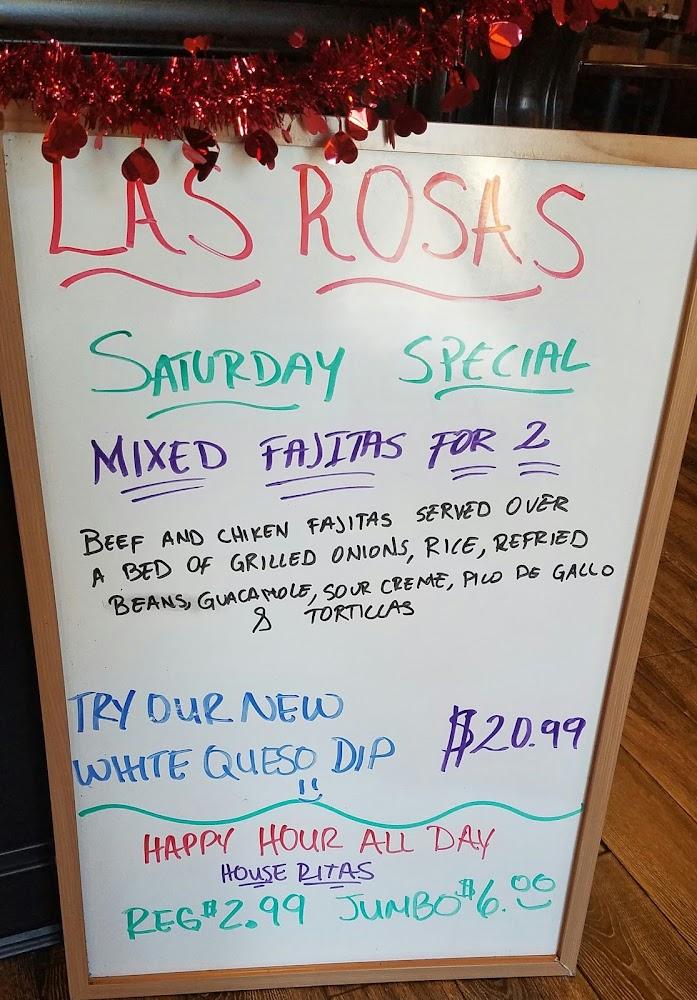 LAS ROSAS
SATURDAY SPECIAL
MIXED FAJITAS FOR 2
BEEF AND CHIKEN FAJITAS SERVED OVER
A BED OF GRILLED ONIONS, RICE, REFRIED
BEANS, GUACAMOLE, SOUR CREME, PICO DE GALLO
& TORTILLAS
TRY OUR NEW
WHITE QUESO DIP
$20.99
HAPPY HOUR ALL DAY
HOUSE RITAS
REG $2.99 JUMBO $6.00